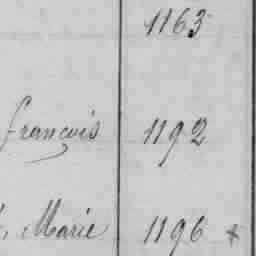 1163
françois 1192
, Marie 1196 *